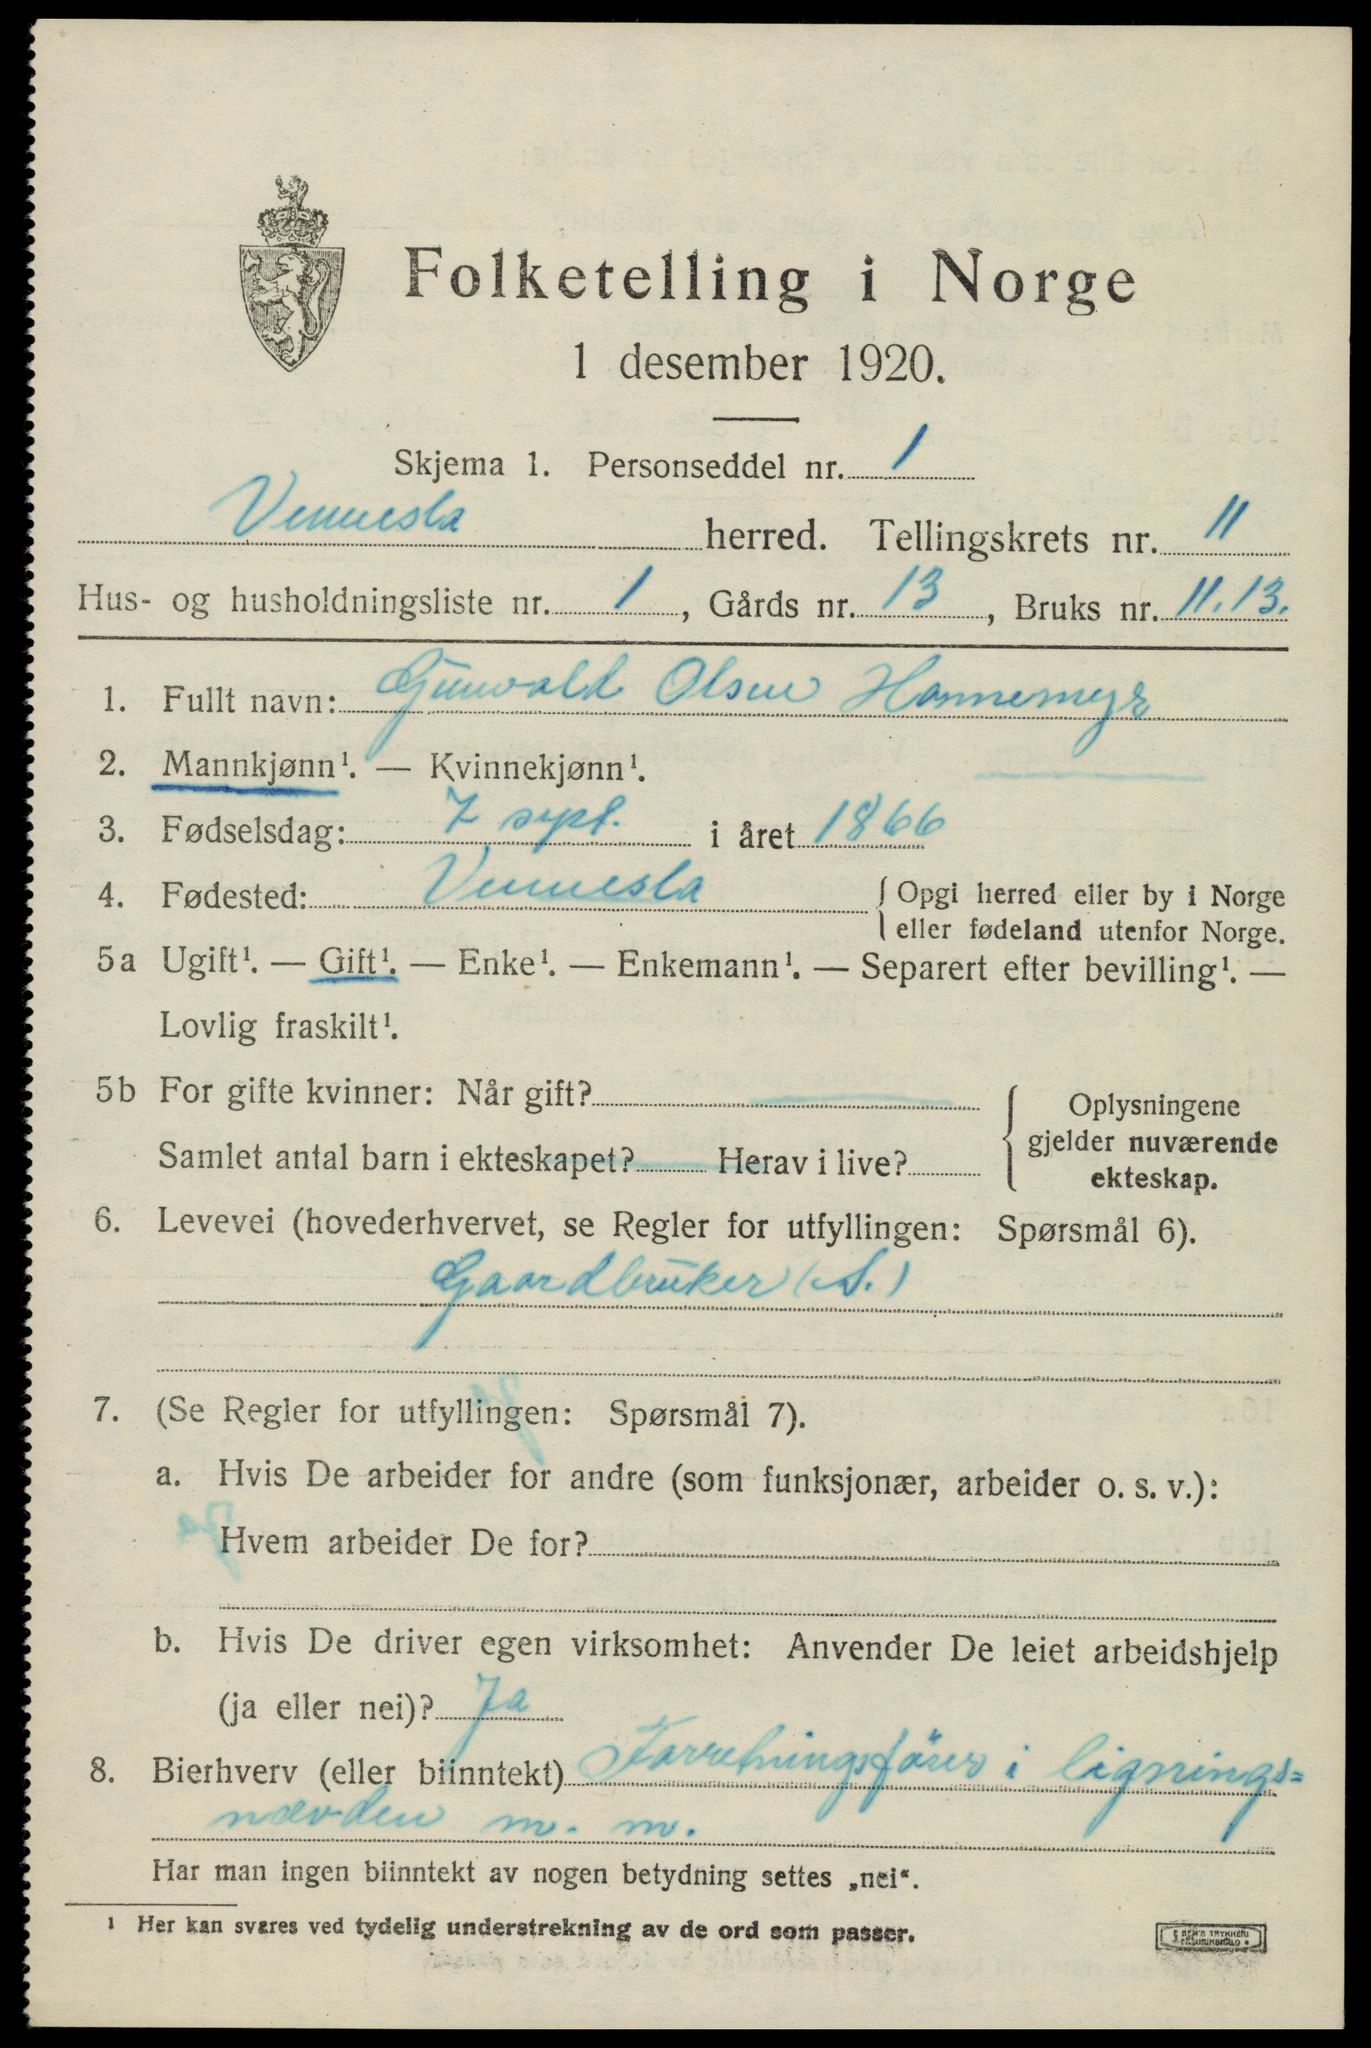 Folketelling i Norge
1 desember 1920.
Skjema 1. Personseddel nr. 1
Vennesla herred. Tellingskrets nr. 11
Hus- og husholdningsliste nr. 1, Gårds nr. 13, Bruks nr. 11.13.
1. Fullt navn: Gunvald Olsen Hommemyr
2. Mannkjønn¹. — Kvinnekjønn¹.
3. Fødselsdag: 7 sept. i året 1866
4. Fødested: Vennesla { Opgi herred eller by i Norge
eller fødeland utenfor Norge.
5a Ugift¹. — Gift¹. — Enke¹. — Enkemann¹. — Separert efter bevilling¹. —
Lovlig fraskilt¹.
5b For gifte kvinner: Når gift?
Samlet antal barn i ekteskapet? Herav i live?
Oplysningene
gjelder nuværende
ekteskap.
6. Levevei (hovederhvervet, se Regler for utfyllingen: Spørsmål 6).
Gaardbruker (S.)
7. (Se Regler for utfyllingen: Spørsmål 7).
a. Hvis De arbeider for andre (som funksjonær, arbeider o. s. v.):
Hvem arbeider De for?
b. Hvis De driver egen virksomhet: Anvender De leiet arbeidshjelp
(ja eller nei)? Ja
8. Bierhverv (eller biinntekt) Forretningsfører i lignings=
nævden m. m.
Har man ingen biinntekt av nogen betydning settes „nei“.
¹ Her kan svares ved tydelig understrekning av de ord som passer.